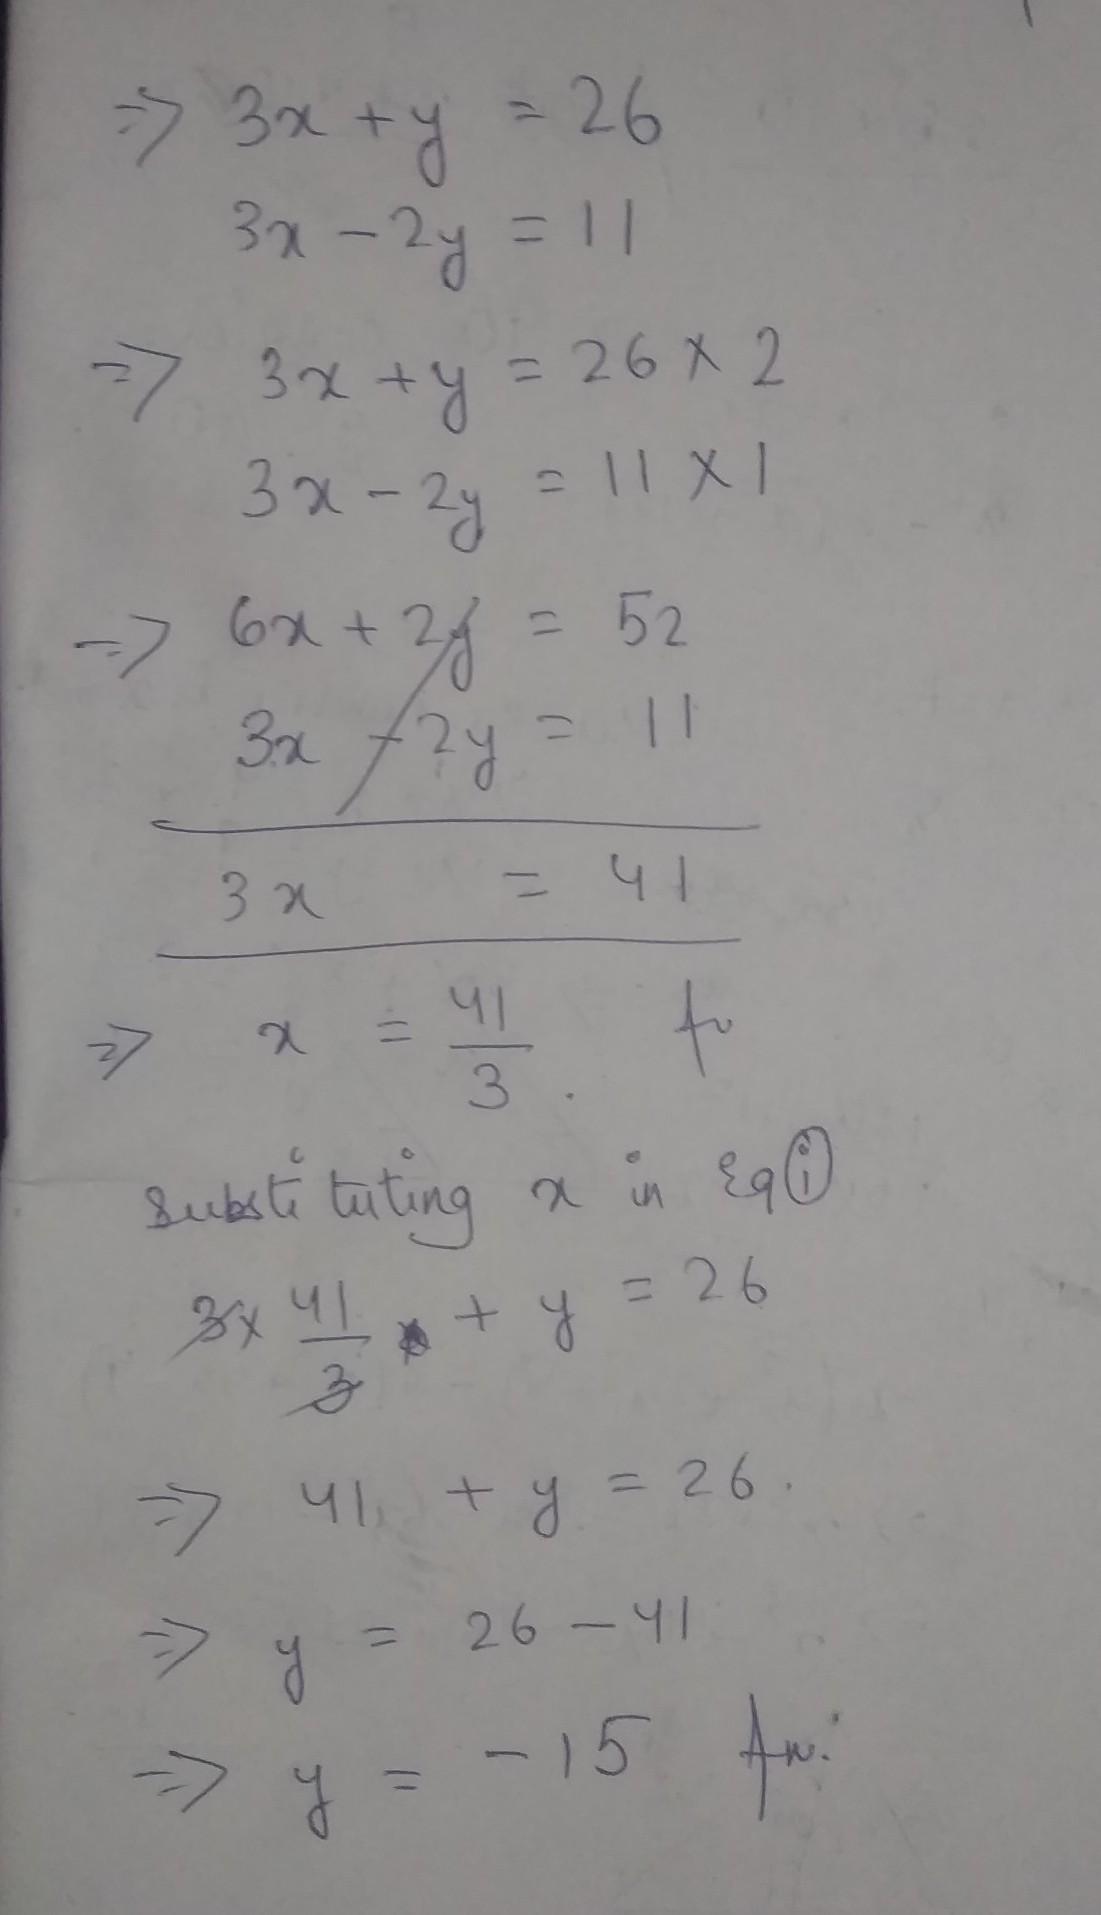 ⇒ 3x + y = 26
3x - 2y = 11
⇒ 3x + y = 26 × 2
3x - 2y = 11 × 1
⇒ 6x + 2y = 52
3x - 2y = 11
3x = 41
⇒ x = 41/3.
Substituting x in Eq ①
3 × 41/3 + y = 26
⇒ 41 + y = 26.
⇒ y = 26 - 41
⇒ y = -15 An: